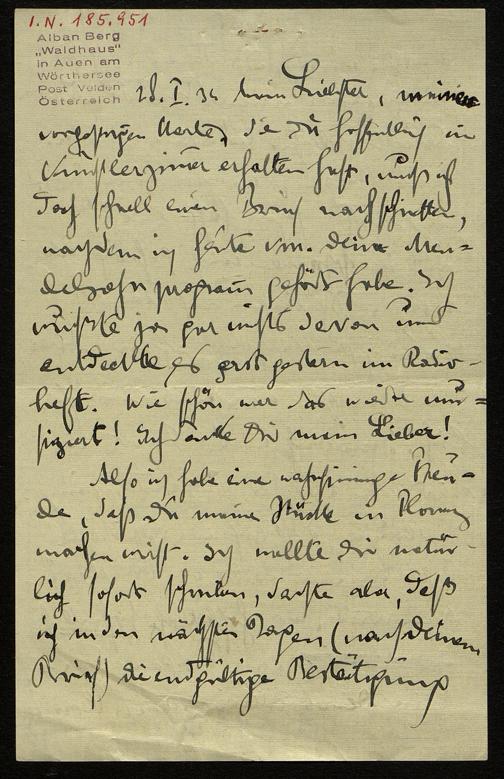 I.N. 185.951
Alban Berg
„Waldhaus“
in Auen am
Wörthersee
Post Velden
Österreich
28. I. 34 Mein Liebster, meinen
vorgestrigen Karte, die Du hoffentlich im
Künstlerzimmer erhalten hast, muß ich
doch schnell einen Brief nachschicken,
nachdem ich heute vm. Dein Men=
delssohn programm gehört habe. Ich
wußte ja gar nichts davon und
entdeckte es erst gestern im Radio-
heft. Wie schön war das wieder mu=
siziert! Ich danke Dir mein Lieber!
Also ich habe eine wahnsinnige Freu-
de, daß Du meine Stücke in Florenz
machen wirst. Ich wollte Dir natür-
lich sofort schreiben, dachte aber, daß
ich in den nächsten Tagen (nach Deinem
Brief) die endgültige Bestätigung